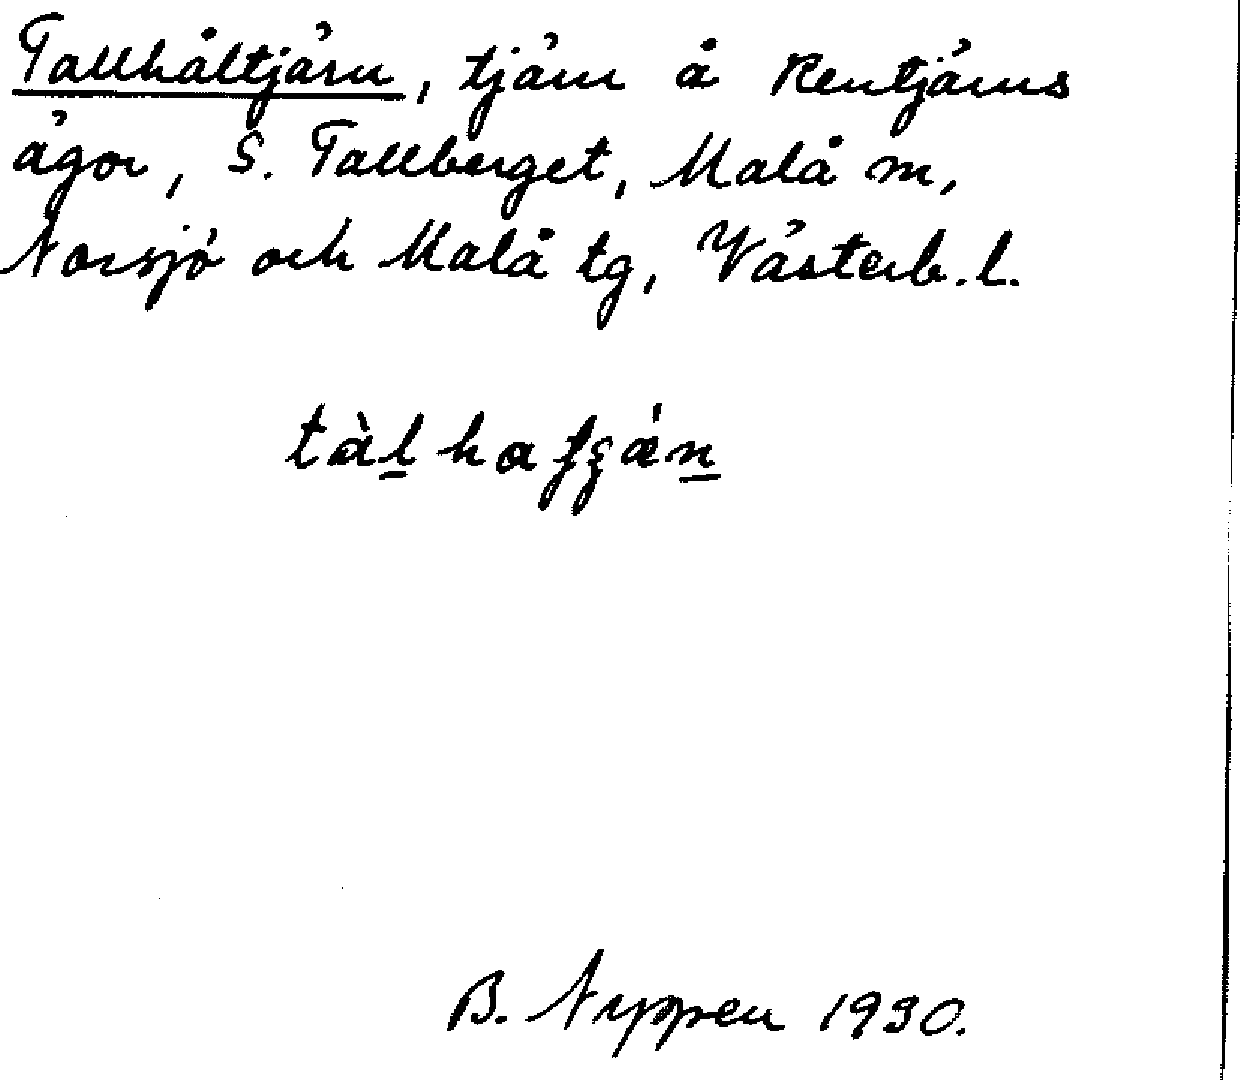 Tallhåltjärn, tjärn å Rentjärns
ägor, S. Tallberget, Malå m,
Norsjö och Malå tg, Västerb. l.
B. Nyppen 1930.